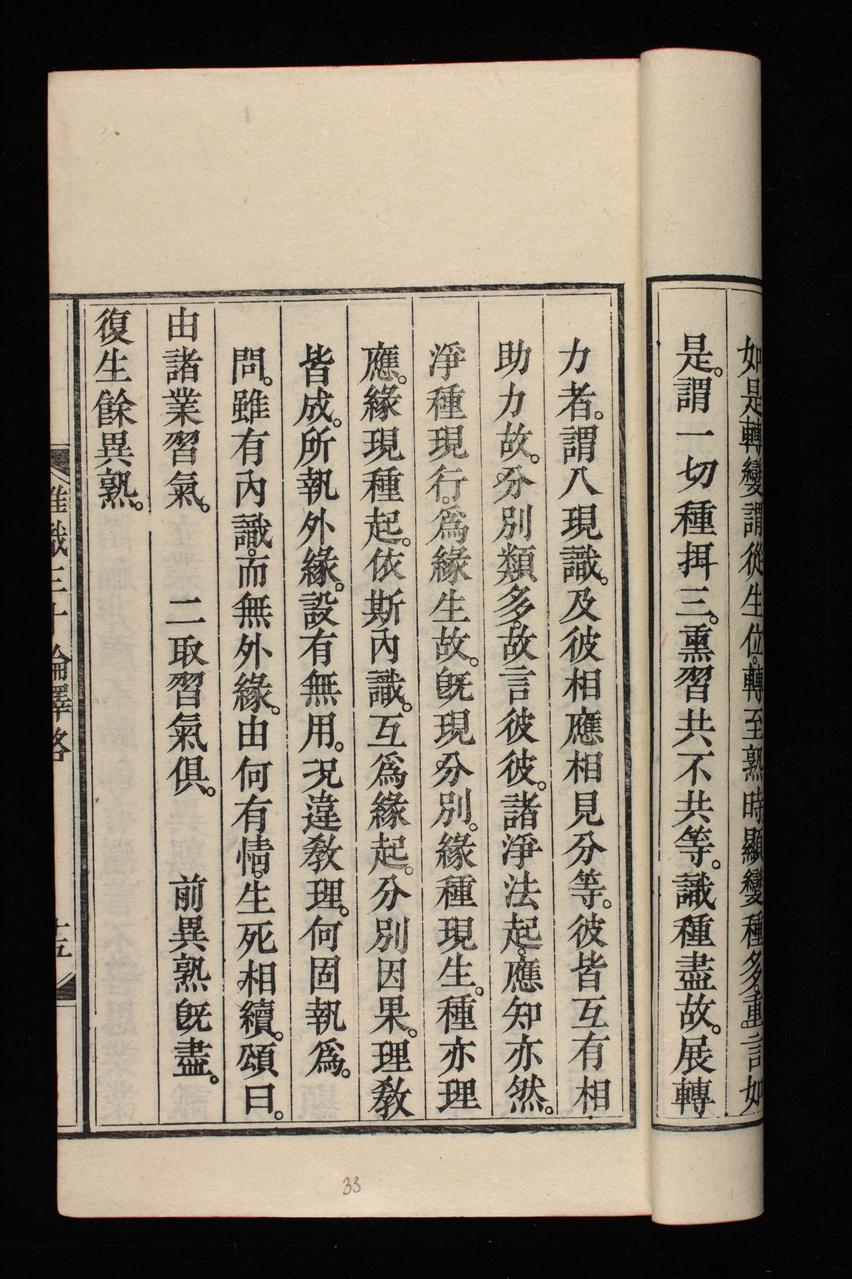 如是轉變謂從生位。轉至熟時顯變種多。重言如
是。謂一切種揖三。熏習共不共等。識種盡故。展轉
力者。謂八現識。及彼相應相見分等。彼皆互有相
助力故。分別類多。故言彼彼。諸淨法起。應知亦然。
淨種現行。爲緣生故。旣現分別。緣種現生。種亦理
應。緣現種起。依斯內識。互爲緣起。分別因果。理教
皆成。所執外緣。設有無用。况違教理。何固執爲。
問。雖有內識。而無外緣。由何有情。生死相續。頌曰。
由諸業習氣。　二取習氣俱。　前異熟旣盡。
復生餘異熟。
唯識三十論譯略
十五
33